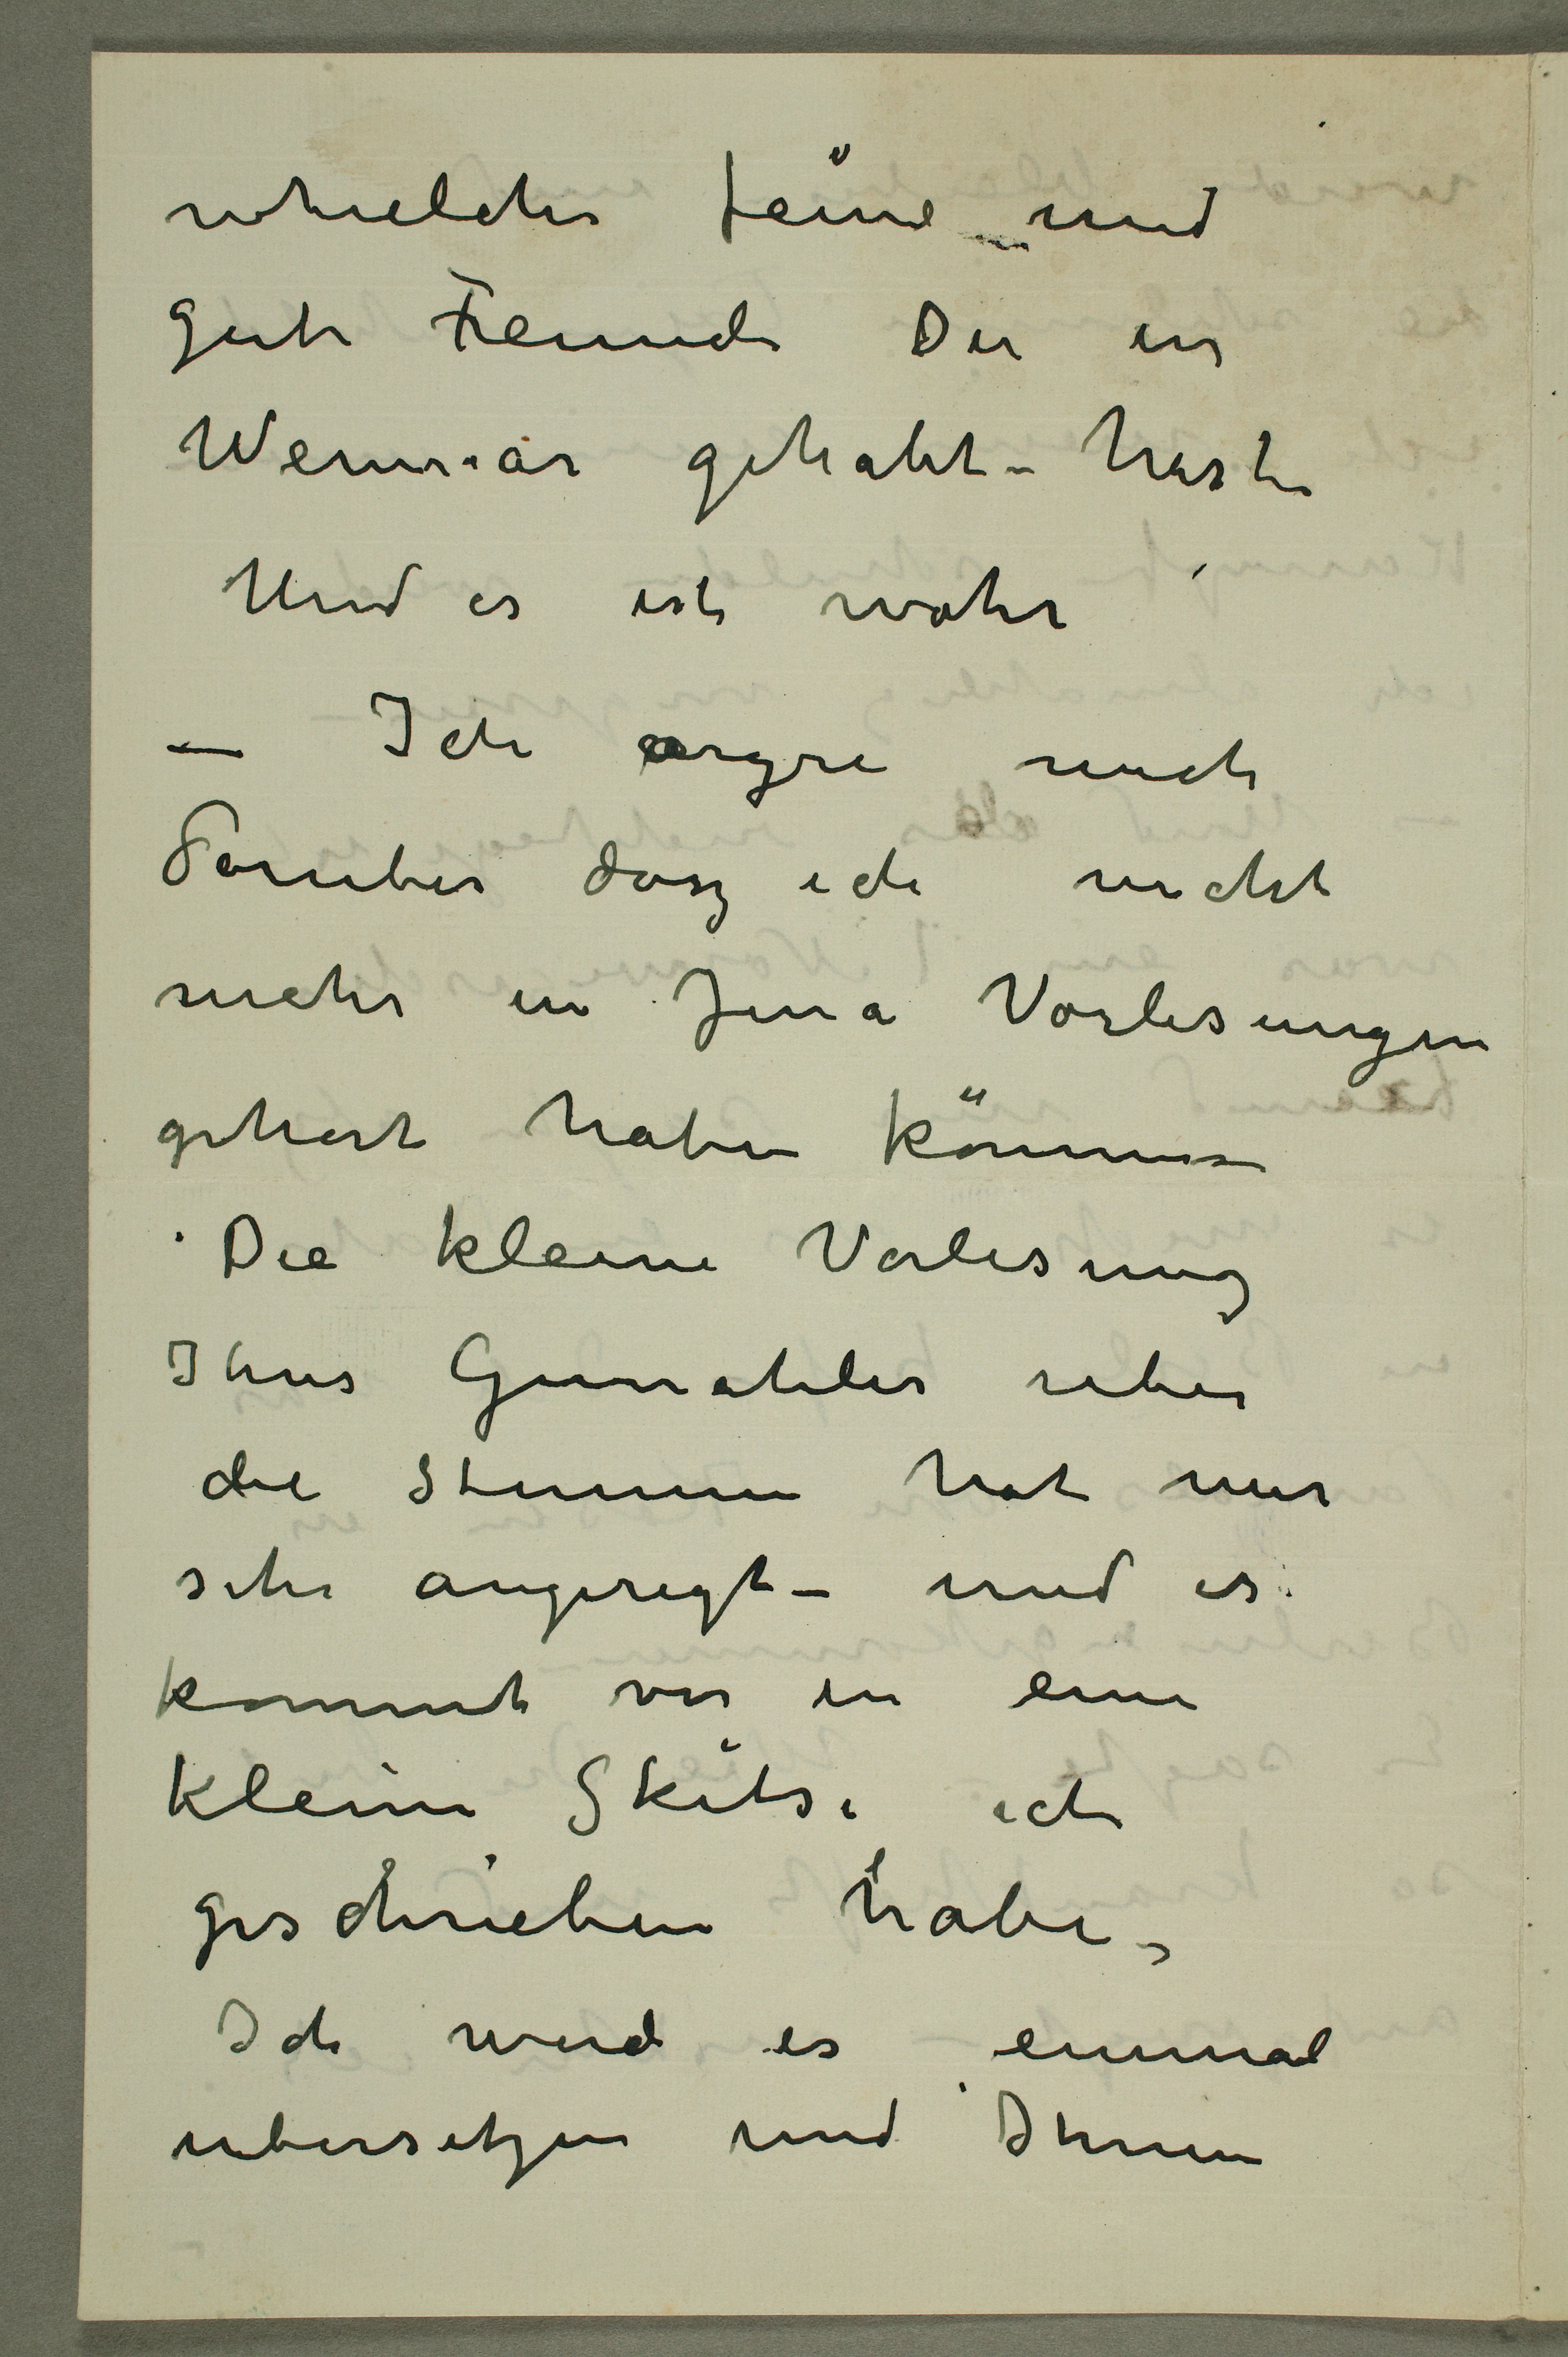 whielche feine und
gute Freunde Du in
Weimar gehabt – hast
Und es ist wahr
— Ich argre mich
daruber dasz ich nicht
mehr in Jena Vorlesungen
gehort haben können
Die kleine Vorlesung
Ihres Gemahles uber
die Stimmen hat mir
sehr angeregt – und es
kommt vor in eine
kleine Skitse ich
geschrieben habe,
Ich werde es einmal
ubersetzen und Ihnen